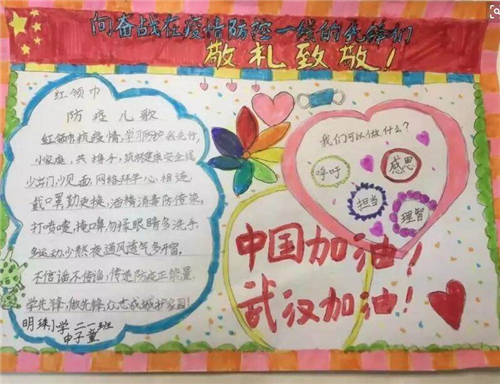 向奋战在疫情防控一线的先锋们
敬礼致敬!
红领巾
防疫儿歌
红领巾抗疫情,学习防护我先行,
小家庭,共携手,筑好健康安全线
少出门少见面,网络拜年心相连
戴口罩勤更换,酒精消毒防传染,
打喷嚏,掩口鼻勿揉眼睛多洗手,
多运动少熬夜通风透气多开窗,
不信谣不传谣,传递防疫正能量,
学先锋,做先锋,众志成城护家园!
明珠小学 二一班
申子童
我们可以做什么?
呼吁
感恩
担当
理智
中国加油!
武汉加油!